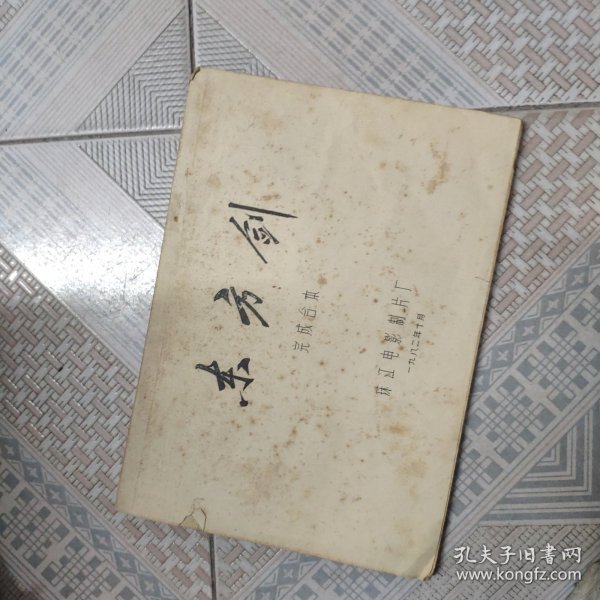 东方剑
完成台本
珠江电影制片厂
一九八二年十月
孔夫子旧书网
www.kongfz.com